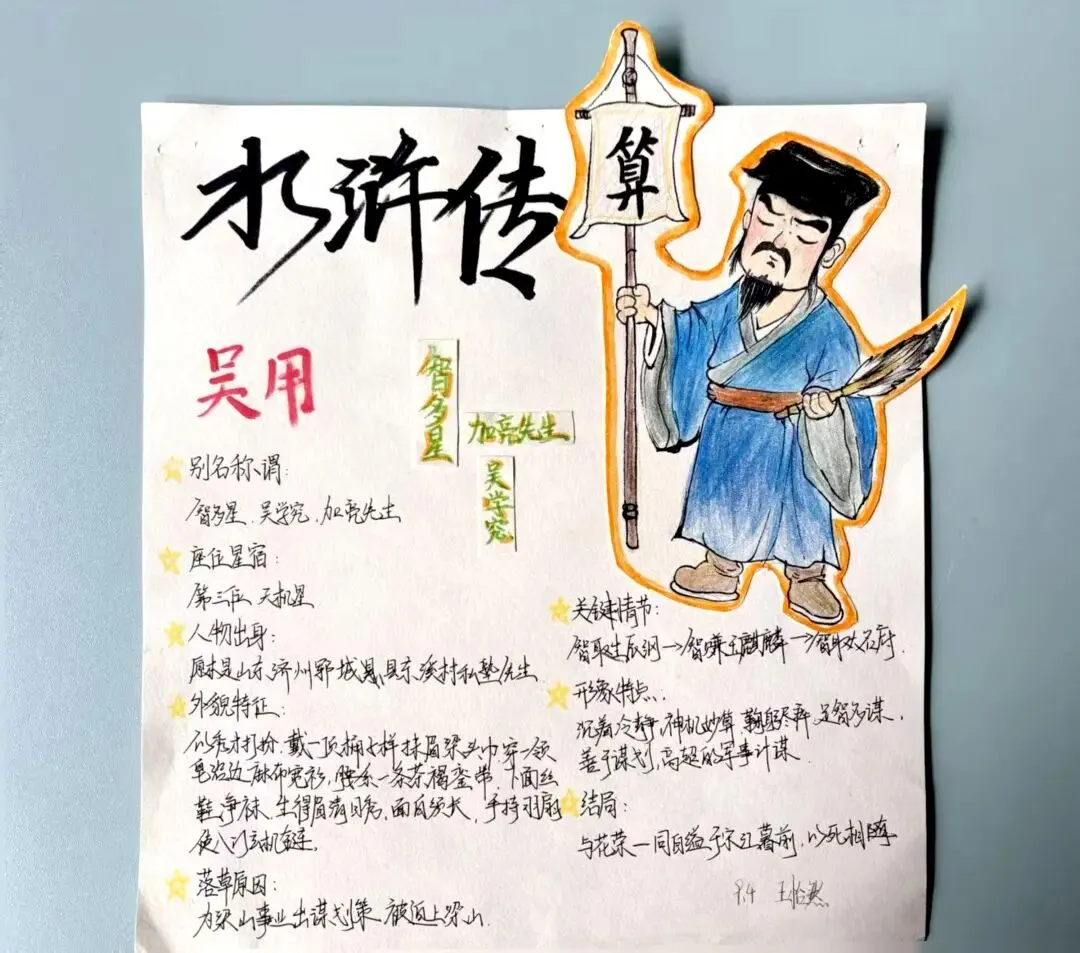 水浒传
算
吴用
智多星
加亮先生
吴学究
别名称谓:
智多星、吴学究、加亮先生
座位星宿:
第三位 天机星
人物出身:
原本是山东济州郓城县东溪村私塾先生
外貌特征:
似秀才打扮,戴一顶桶子样抹眉梁头巾,穿一领
皂沿边麻布宽衫,腰系一条茶褐銮带,下面丝
鞋净袜,生得眉清目秀,面白须长,手持羽扇
使
落草原因:
为梁山事业出谋划策,被逼上梁山.
关键情节:
智取生辰纲→智赚玉麒麟→智取文石府.
形象特点:
沉着冷静,神机妙算,鞠躬尽瘁,足智多谋,
善于谋划,高超的军事计谋.
结局:
与花荣一同自缢于宋江暮前,以死相随
9.4 王怡然